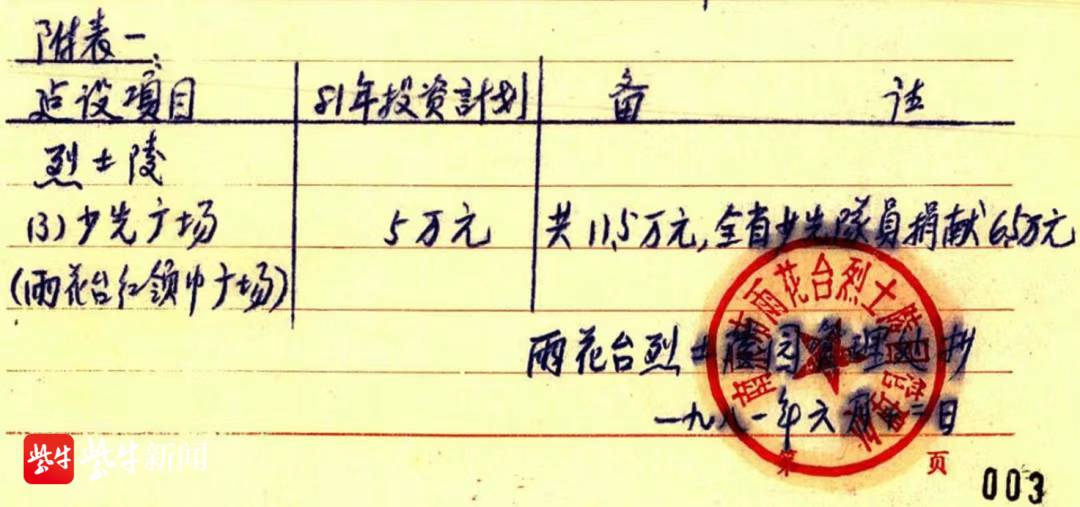 附表一:
建设项目 81年投资計划 备 注
烈士陵
(3)少先广场 5万元 共11.5万元,全省少先隊員捐献6.5万元
(雨花台红领巾广场)
雨花台烈士陵园管理处抄
一九八一年六月十二日
南京雨花台烈士陵园管理处
第 页
003
紫牛 紫牛新闻